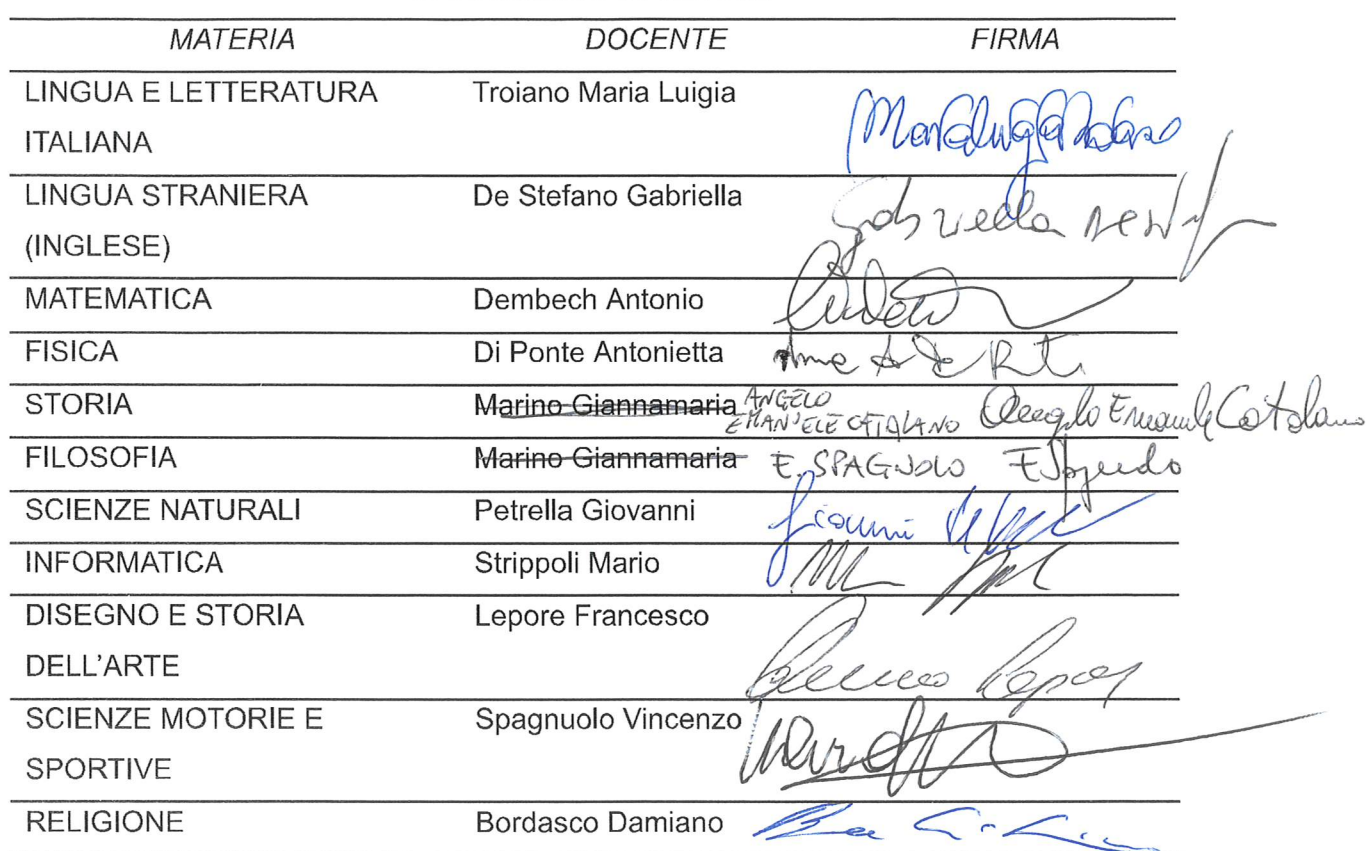 MATERIA DOCENTE FIRMA
LINGUA E LETTERATURA Troiano Maria Luigia
ITALIANA
LINGUA STRANIERA De Stefano Gabriella Gabriella
(INGLESE)
MATEMATICA Dembech Antonio
FISICA Di Ponte Antonietta
STORIA Marino Giannamaria ANGELO
EMANUELE CATALANO Angelo Emanuele Catalano
FILOSOFIA Marino Giannamaria E. SPAGNUOLO
SCIENZE NATURALI Petrella Giovanni Gianni
INFORMATICA Strippoli Mario
DISEGNO E STORIA Lepore Francesco
DELL'ARTE
SCIENZE MOTORIE E Spagnuolo Vincenzo
SPORTIVE
RELIGIONE Bordasco Damiano